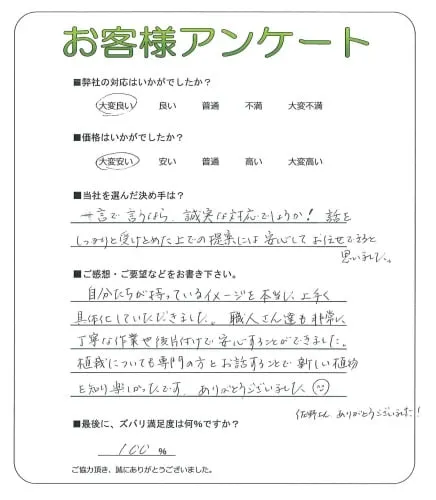 お客様アンケート
■弊社の対応はいかがでしたか？
大変良い 良い 普通 不満 大変不満
■価格はいかがでしたか？
大変安い 安い 普通 高い 大変高い
■当社を選んだ決め手は？
一言で言うなら、誠実な対応でしょうか！ 話を
しっかりと受けとめた上での提案には安心してお任せできると
思いました。
■ご感想・ご要望などをお書き下さい。
自分たちが持っているイメージを本当に上手く
具体化していただきました。職人さん達も非常に
丁寧な作業や後片付けで安心することができました。
植栽についても専門の方とお話することで新しい植物
を知り楽しかったです。ありがとうございました
佐野さん、ありがとうございました！
■最後に、ズバリ満足度は何％ですか？
100 %
ご協力頂き、誠にありがとうございました。